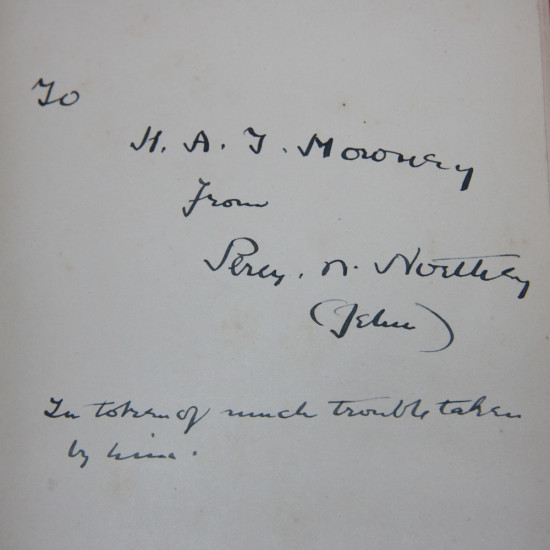 To
H. A. T. Mowowy
From
Percy. N. Northey
(John)
In token of much trouble taken
by him.